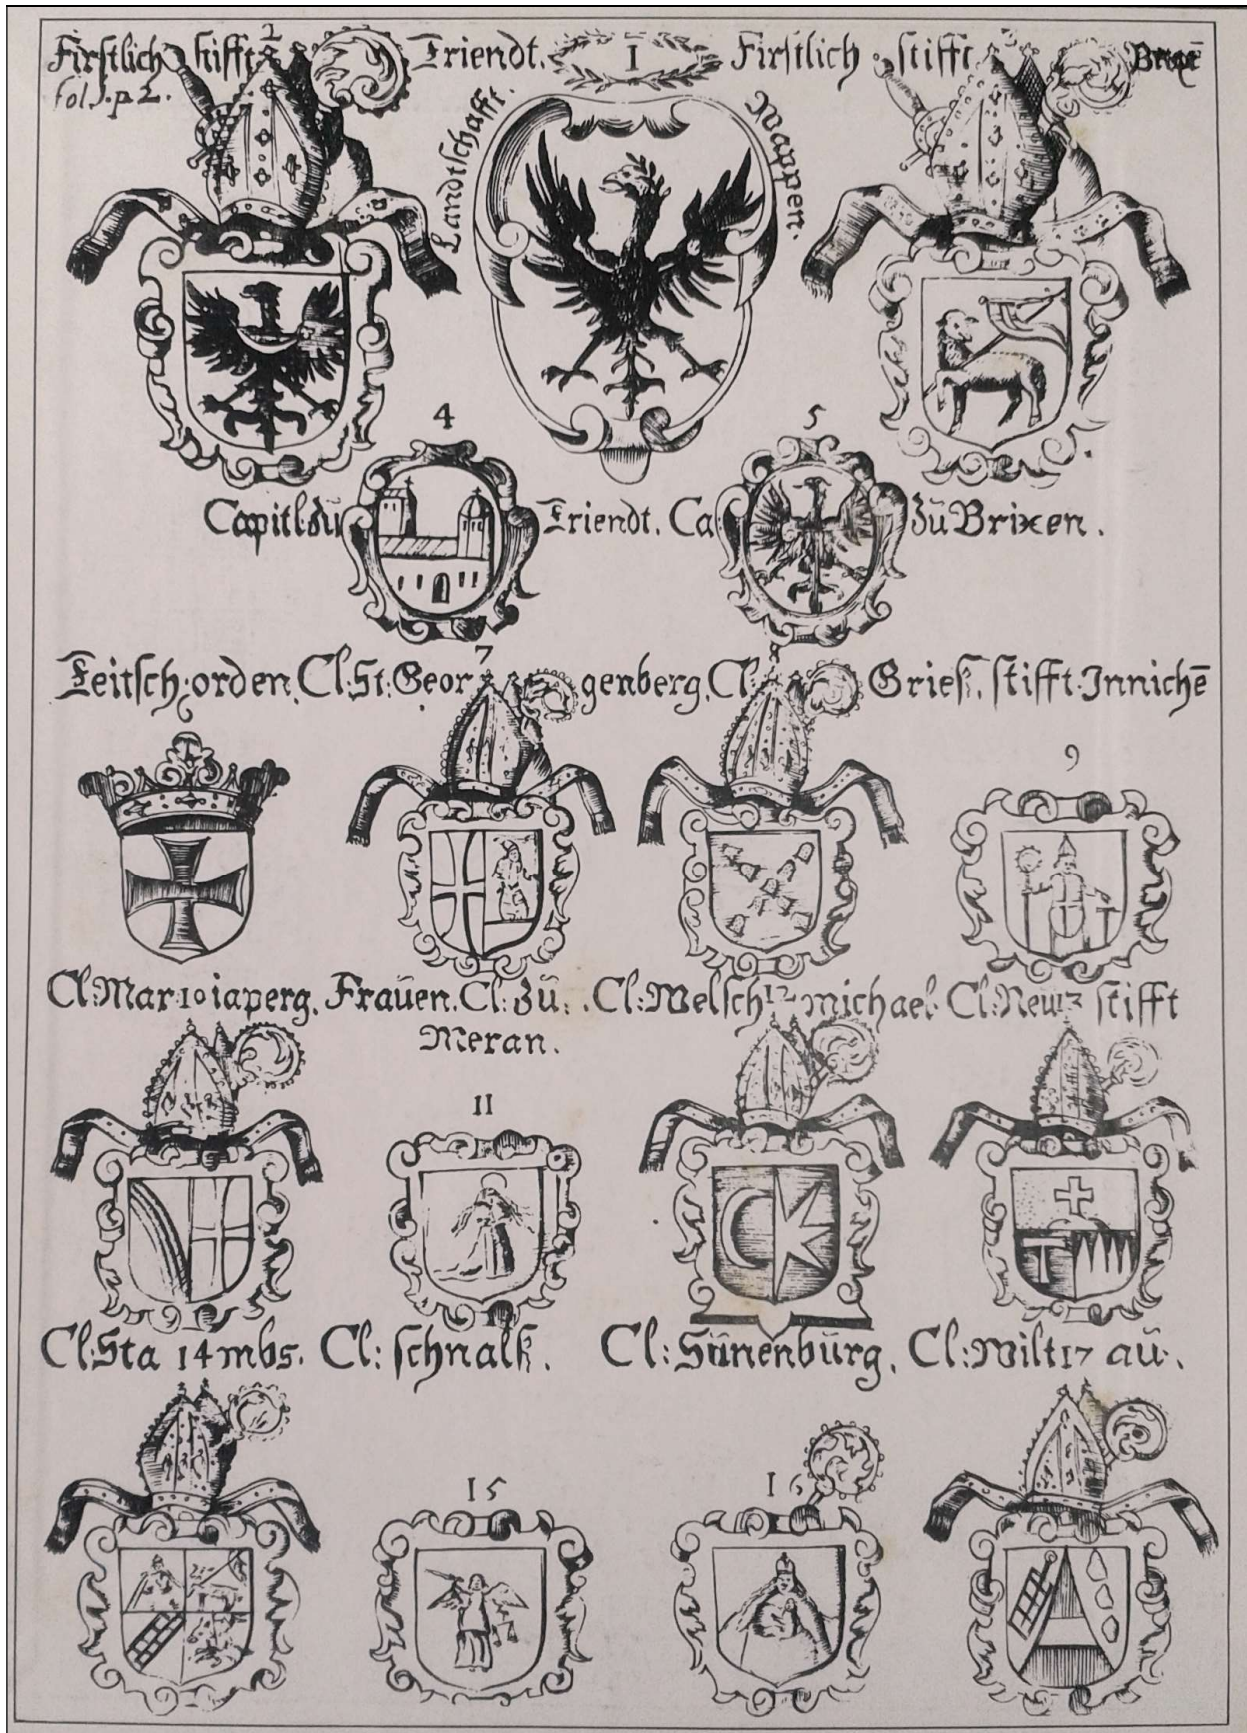 Firstlich stifft 2 Triendt. I Firstlich stifft 3 Brixē
fol. J. p 2.
Landtschafft. Wappen.
4 5
Capitl zů Triendt. Ca zů Brixen.
7 8
Teitsch: orden. Cl: St: Geor genberg. Cl: Grieß. stifft: Innichē
9
Cl: Mar 10 iaperg. Fraůen. Cl: Zů: Cl: Welsch 12 michael. Cl: New 13 stifft
Meran.
11
Cl: Sta 14 mbs. Cl: schnalß. Cl: Sůnenbůrg. Cl: Wilt 17 aů.
15 16